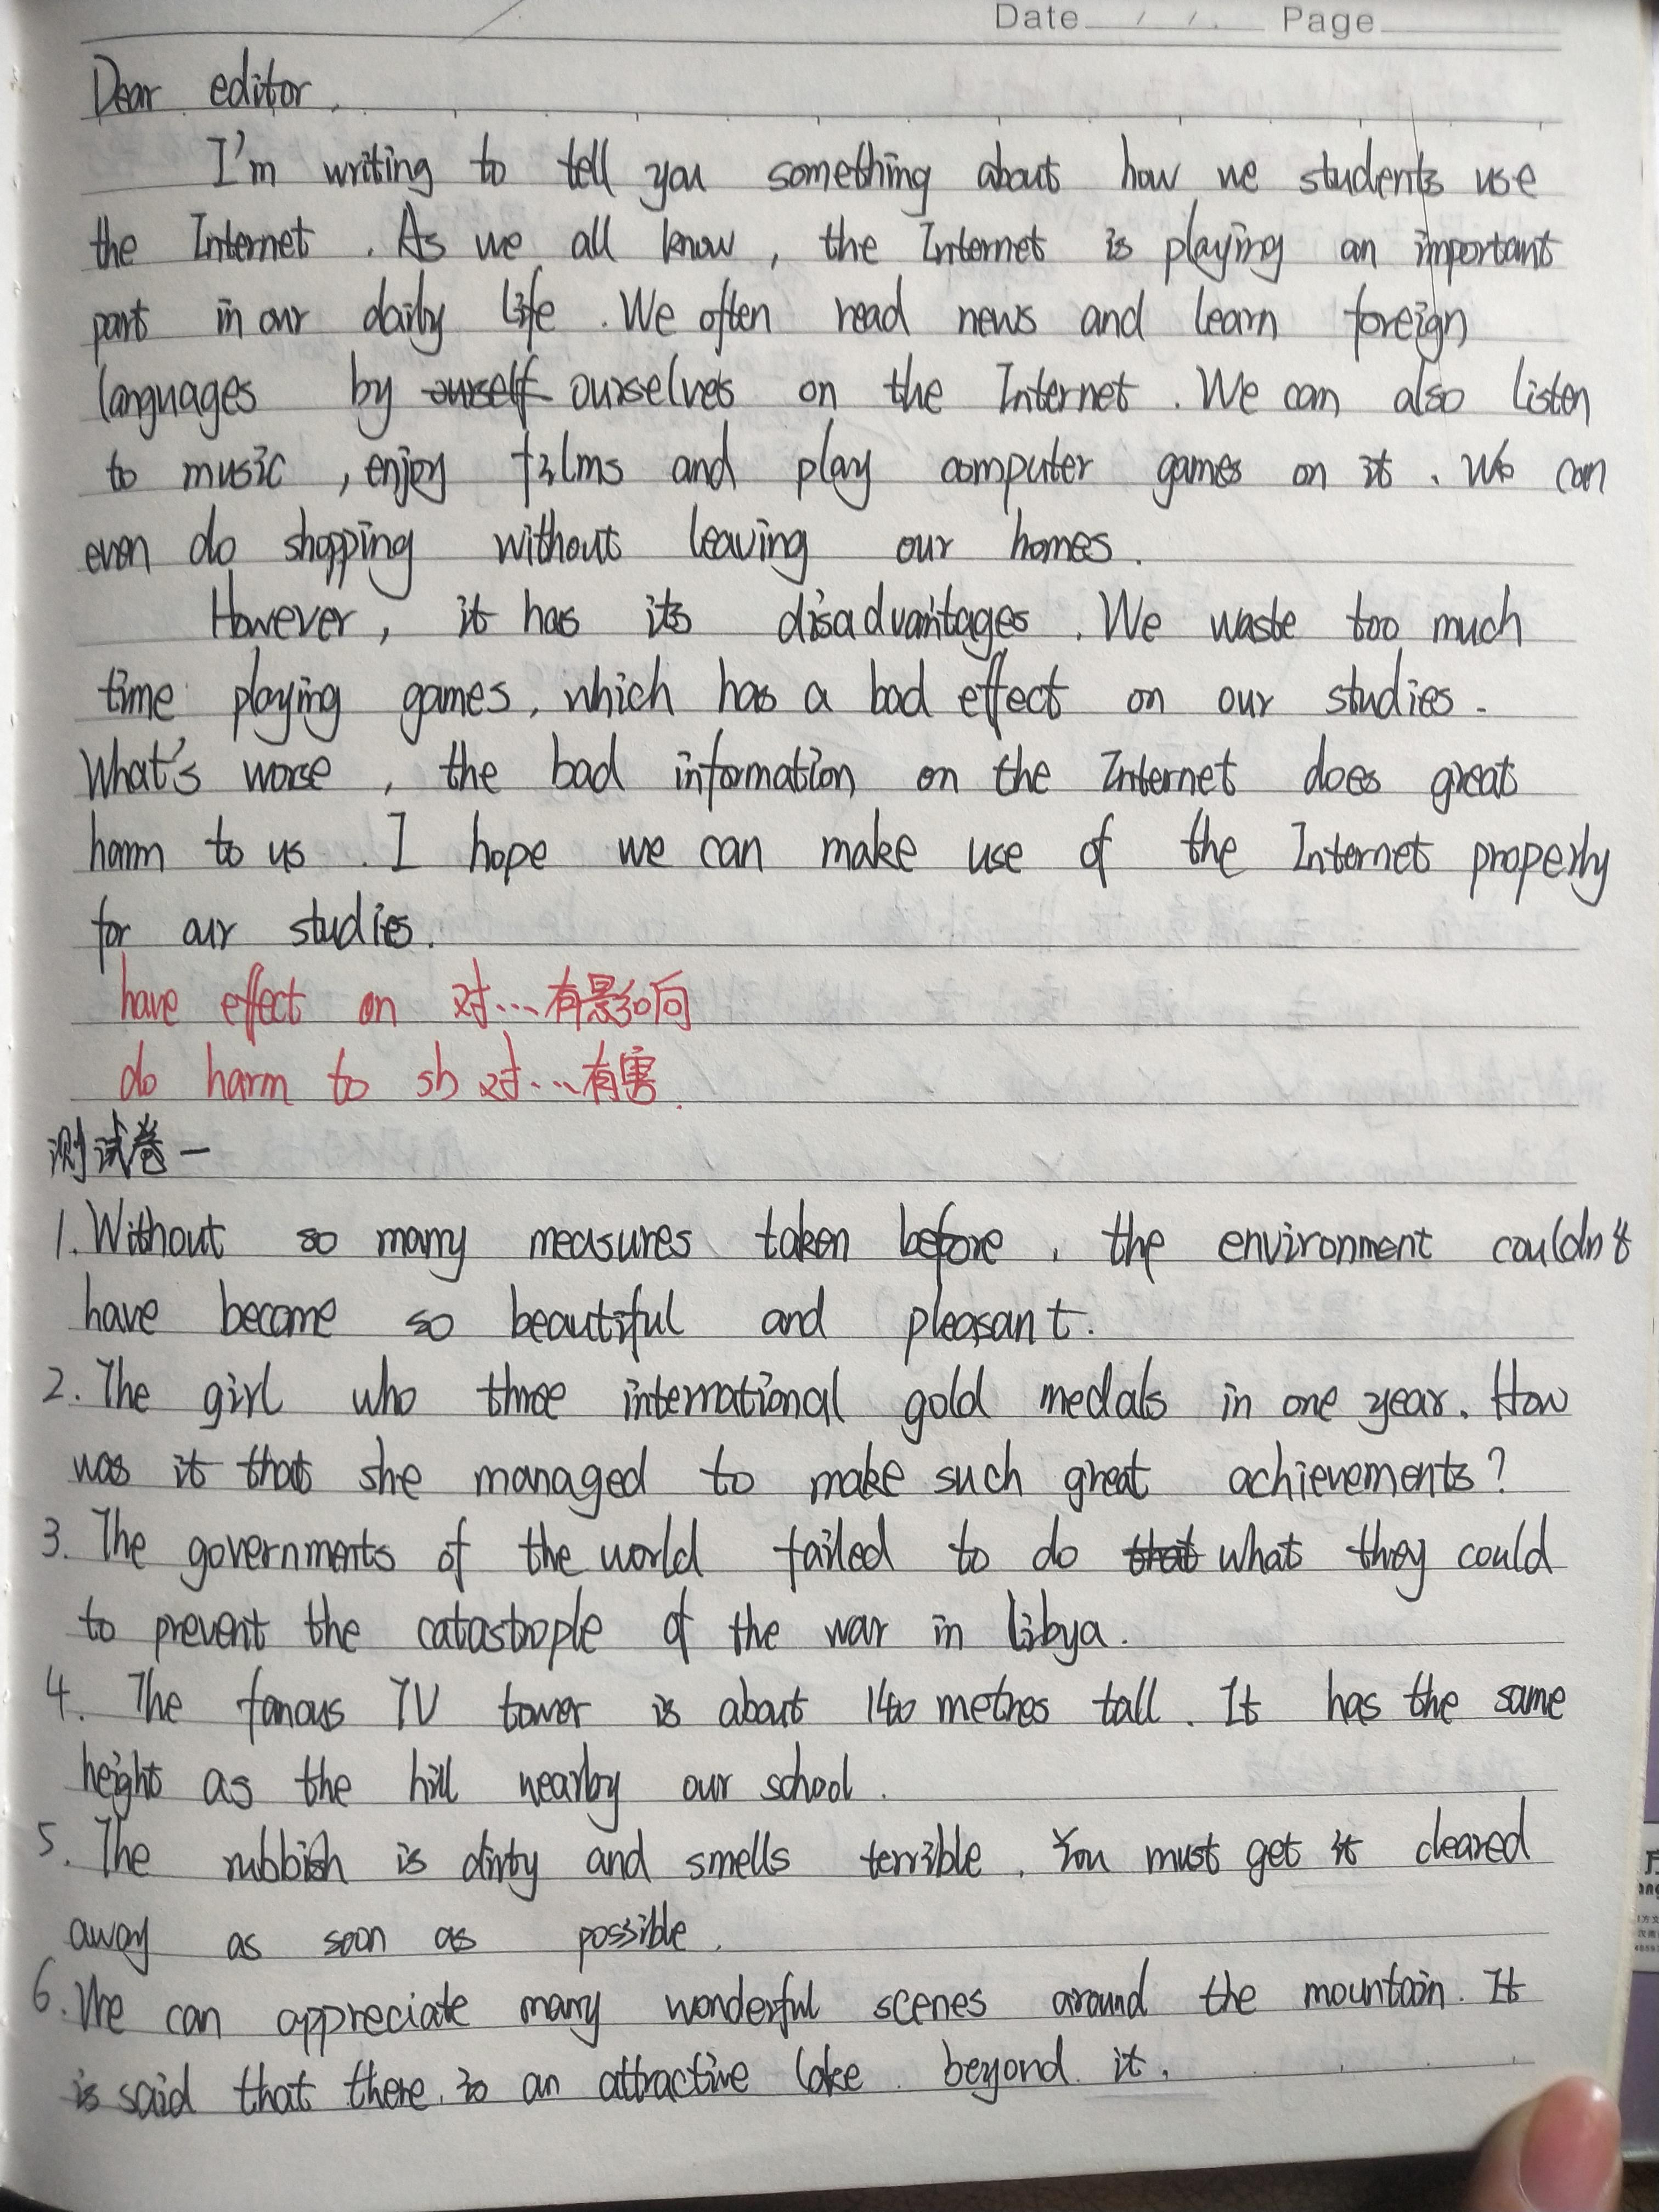 Date / / . Page
Dear editor,
I'm writing to tell you something about how we students use
the Internet . As we all know , the Internet is playing an important
part in our daily life . We often read news and learn foreign
languages by ourself ourselves on the Internet . We can also listen
to music , enjoy films and play computer games on it . We can
even do shopping without leaving our homes .
However , it has its disadvantages . We waste too much
time playing games , which has a bad effect on our studies .
What's worse , the bad information on the Internet does great
harm to us . I hope we can make use of the Internet properly
for our studies .
have effect on 对…有影响
do harm to sb 对…有害.
测试卷一
1. Without so many measures taken before , the environment couldn't
have become so beautiful and pleasant .
2. The girl who three international gold medals in one year . How
was it that she managed to make such great achievements ?
3. The governments of the world failed to do that what they could
to prevent the catastrople of the war in Libya .
4. The famous TV tower is about 140 metres tall . It has the same
height as the hill nearby our school .
5. The rubbish is dirty and smells terrible . You must get it cleared
away as soon as possible .
6. We can appreciate many wonderful scenes around the mountain . It
is said that there is an attractive lake beyond it .